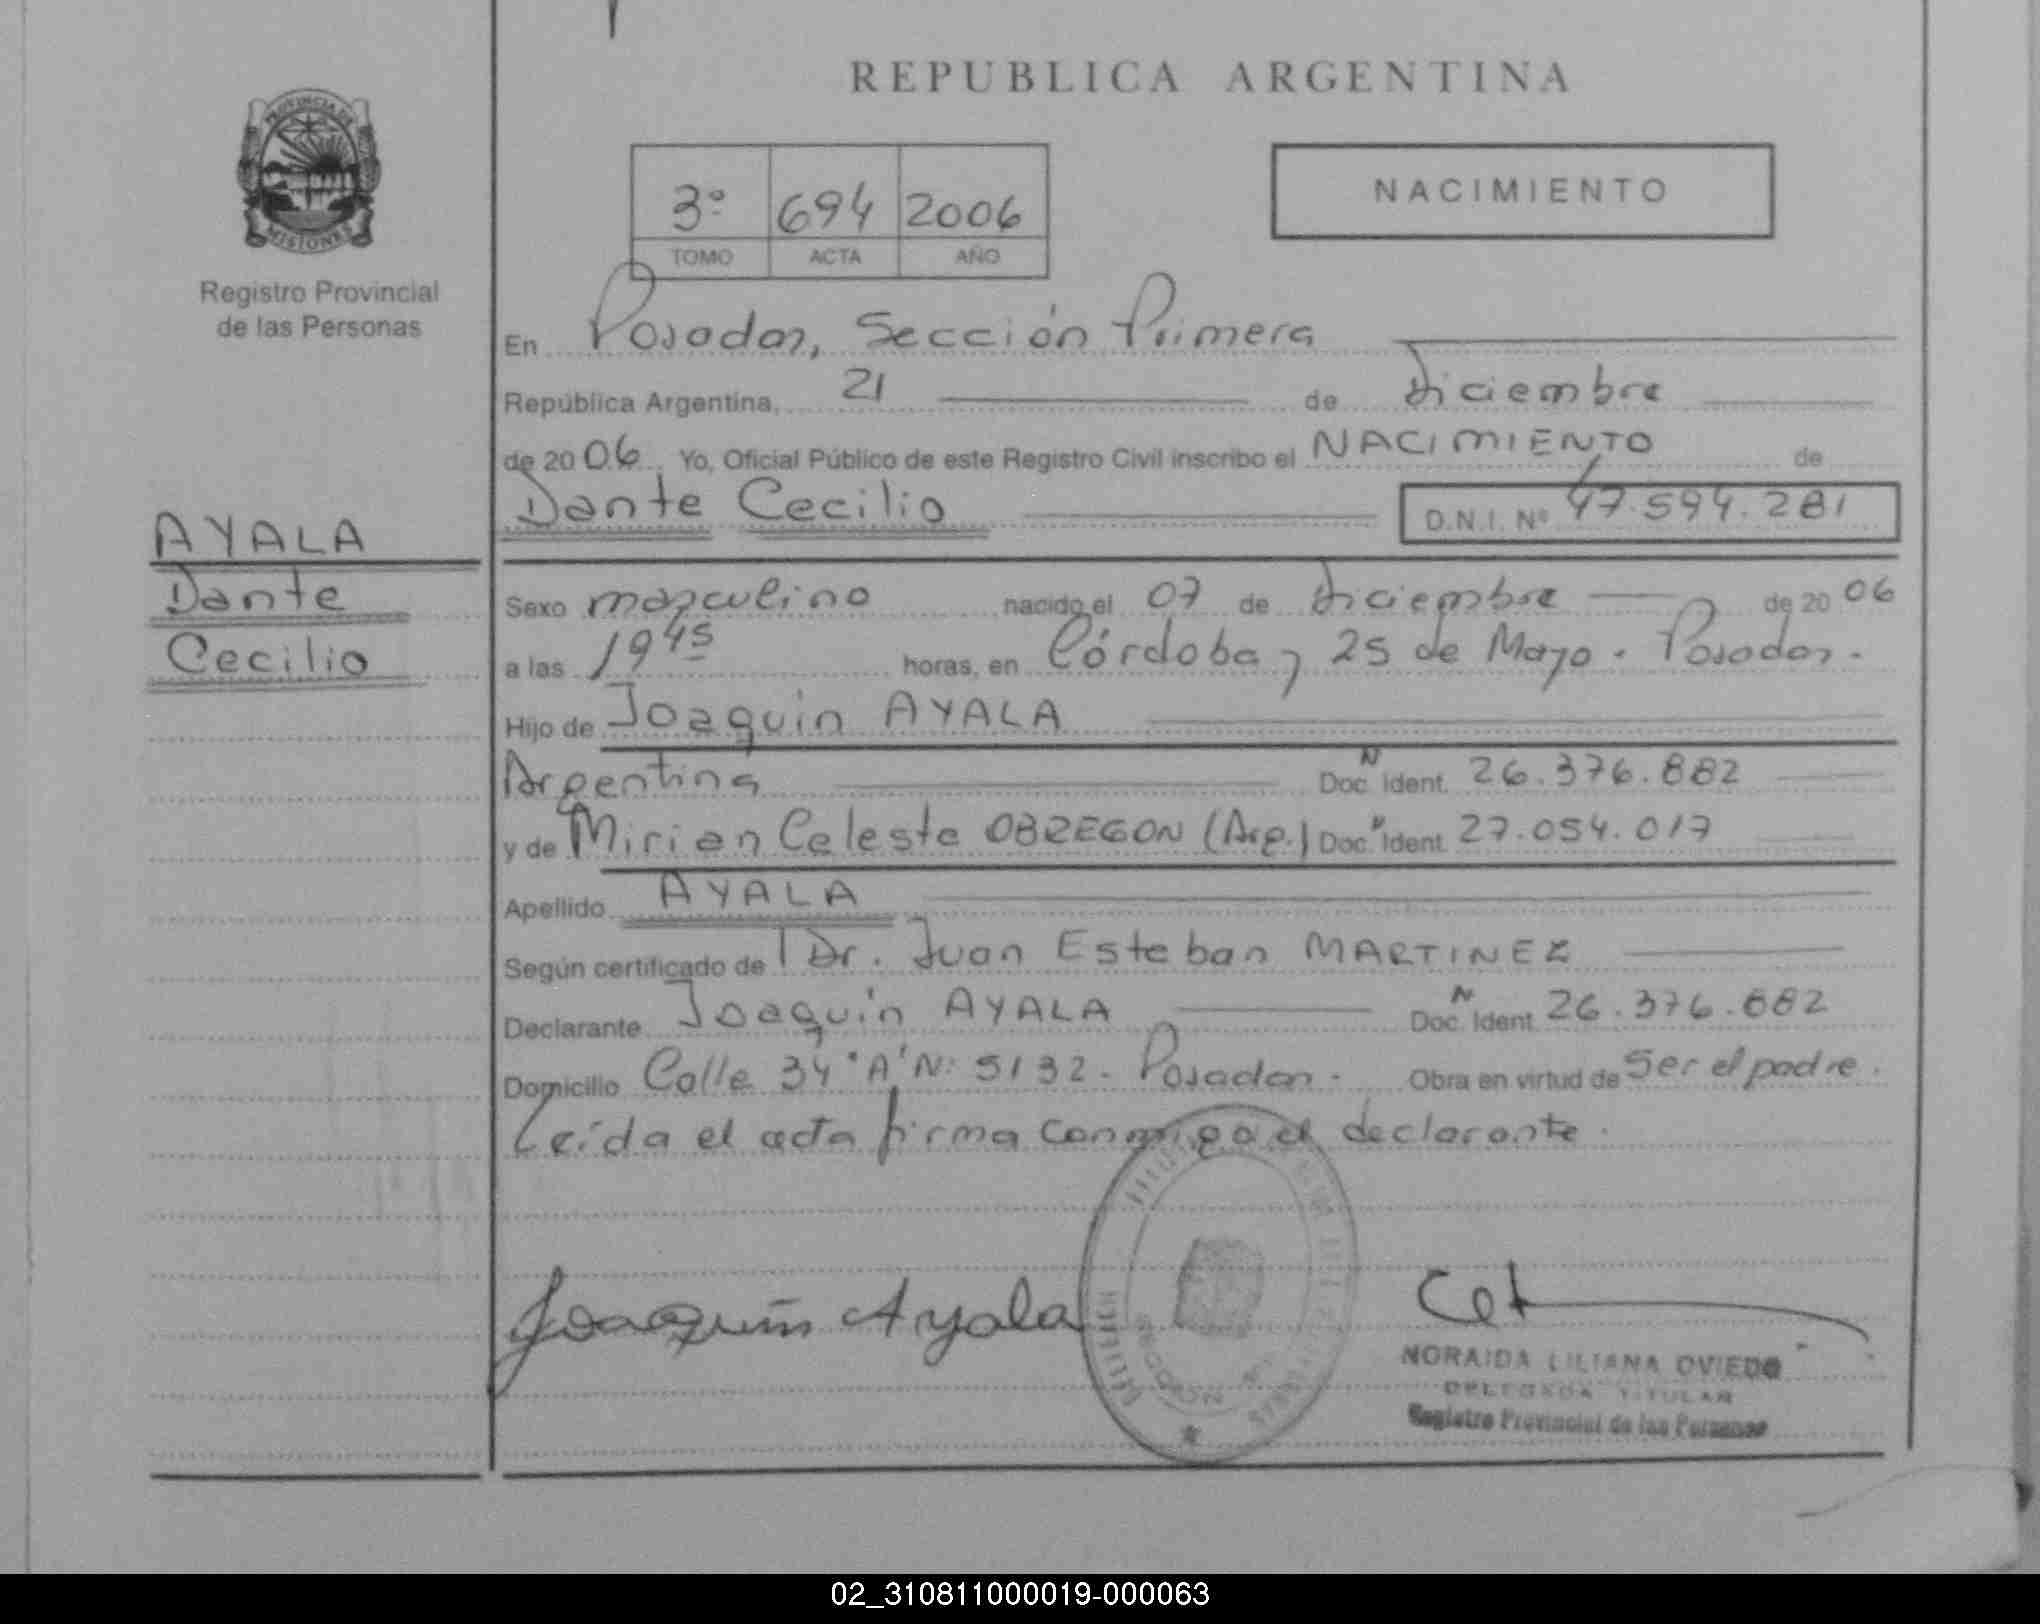 REPUBLICA ARGENTINA
PROVINCIA DE
MISIONES
Registro Provincial
de las Personas
3º 694 2006
TOMO ACTA AÑO
NACIMIENTO
En Posadas, Sección Primera
República Argentina, 21 de diciembre
de 20 06 Yo, Oficial Público de este Registro Civil inscribo el NACIMIENTO de
Dante Cecilio D.N.I. Nº 47.594.281
AYALA
Dante
Cecilio
Sexo masculino nacido el 07 de diciembre de 20 06
a las 19 45 horas, en Córdoba y 25 de Mayo. Posadas.
Hijo de Joaquin AYALA
Argentina Doc. Ident. 26.376.882
y de Mirian Celeste OBREGON (Arg.) Doc. Ident. 27.054.017
Apellido AYALA
Según certificado de Dr. Juan Esteban MARTINEZ
Declarante Joaquín AYALA Doc. Ident. 26.376.882
Domicilio Calle 34 "A" Nº 5132 - Posadas. Obra en virtud de Ser el padre.
Leída el acta firma conmigo el declarante.
Joaquin Ayala
NORAIDA LILIANA OVIEDO
DELEGADA TITULAR
Registro Provincial de las Personas
02_310811000019-000063